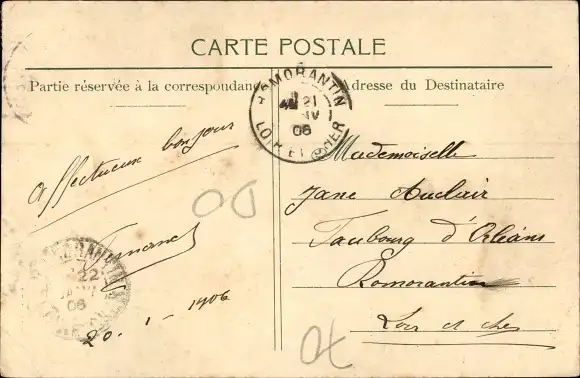 CARTE POSTALE
Partie réservée à la correspondance
Adresse du Destinataire
ROMORANTIN
21
06
LOIR ET CHER
affectueux bonjour
Fernand
20-1-1906
Mademoiselle
Jane Auclair
Faubourg d'Orléans
Romorantin
Loir et cher
ROMORANTIN
22
JANV
06